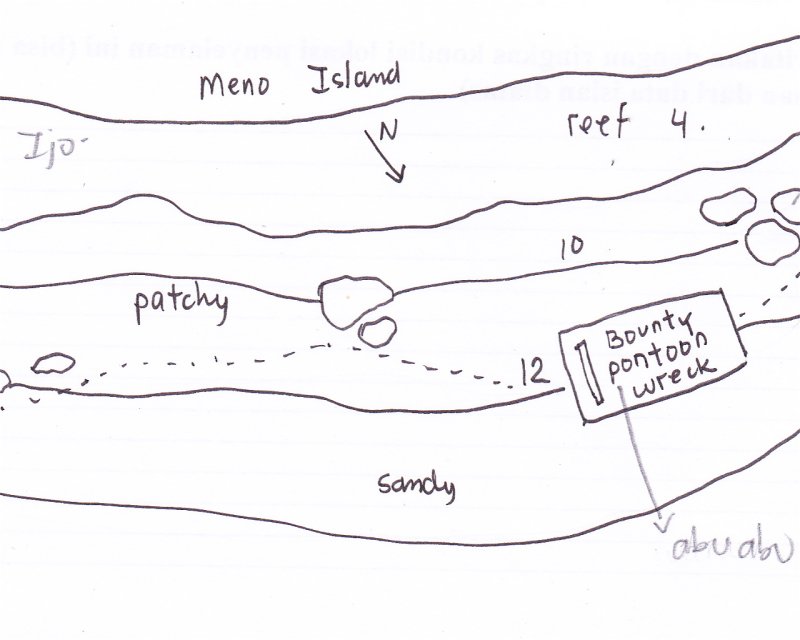 Meno Island
N
reef 4.
Ijo
10
patchy
12
Bounty
pontoon
wreck
sandy
abu abu